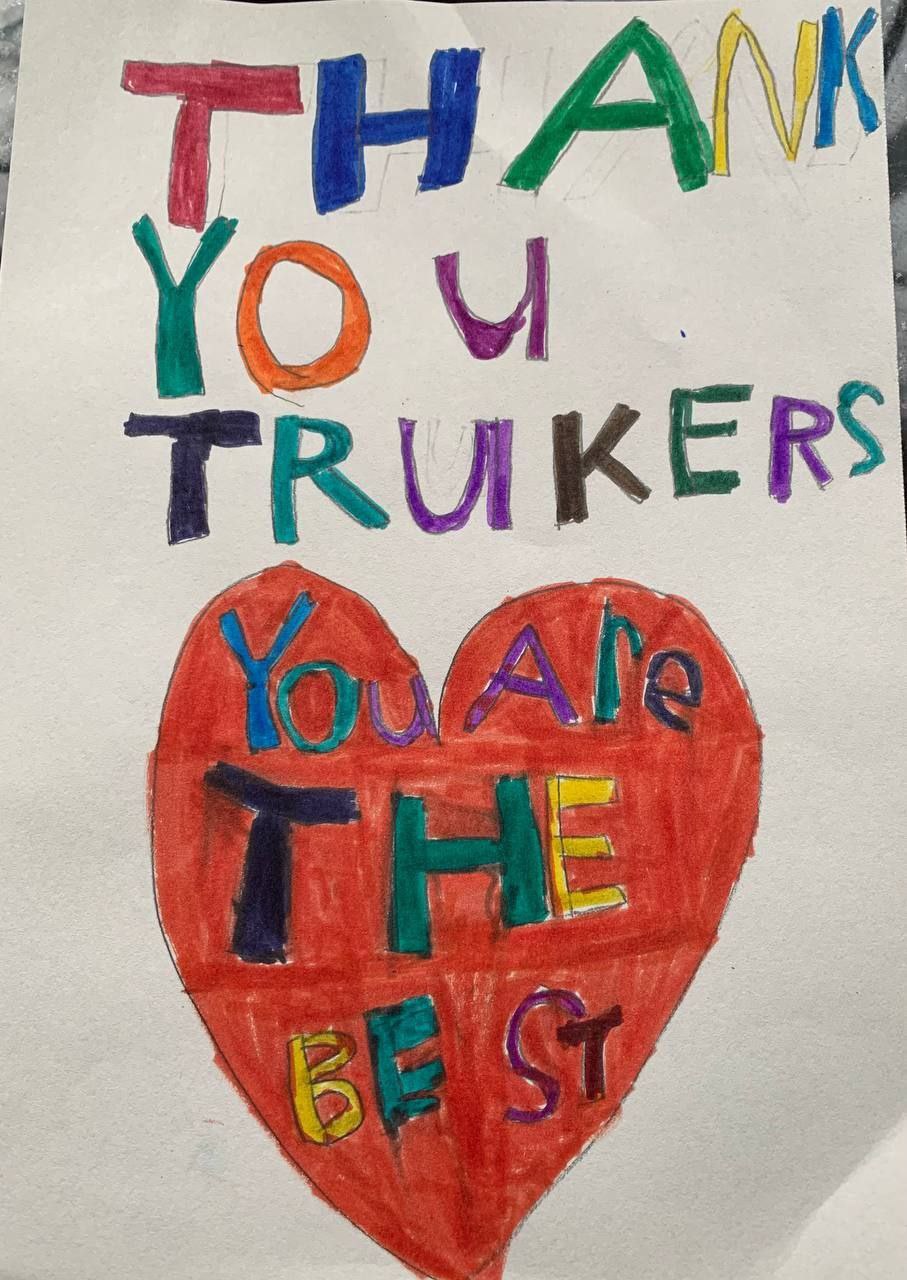 THANK
YOU
TRUKERS
You Are
THE
BEST